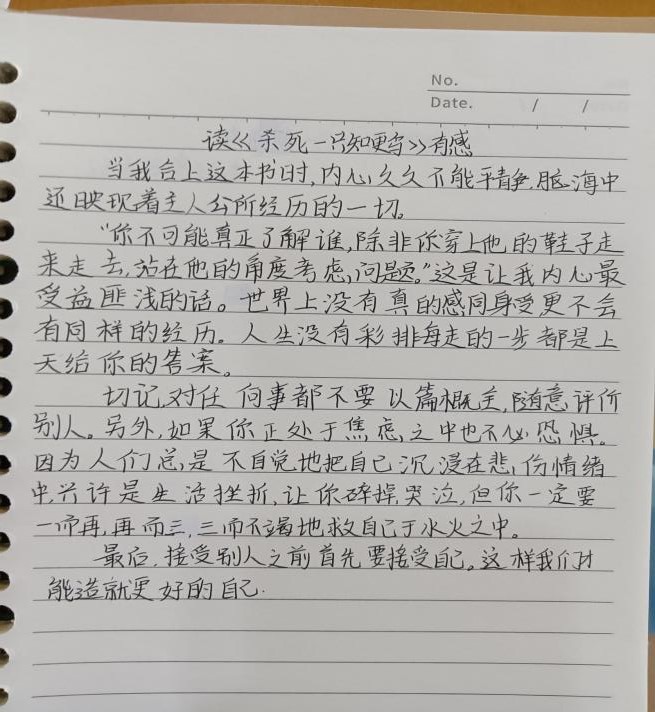 No.
Date. / /
读《杀死一只知更鸟》有感
当我合上这本书时,内心久久不能平静,脑海中
还映现着主人公所经历的一切。
"你不可能真正了解谁,除非你穿上他的鞋子走
来走去,站在他的角度考虑问题。"这是让我内心最
受益匪浅的话。世界上没有真的感同身受更不会
有同样的经历。人生没有彩排每走的一步都是上
天给你的答案。
切记,对任何事都不要以篇概全,随意评价
别人。另外,如果你正处于焦虑之中也不必恐惧。
因为人们总是不自觉地把自己沉浸在悲伤情绪
中,兴许是生活挫折,让你碎掉,哭泣,但你一定要
一而再,再而三,三而不竭地救自己于水火之中。
最后,接受别人之前首先要接受自己。这样我们才
能造就更好的自己.